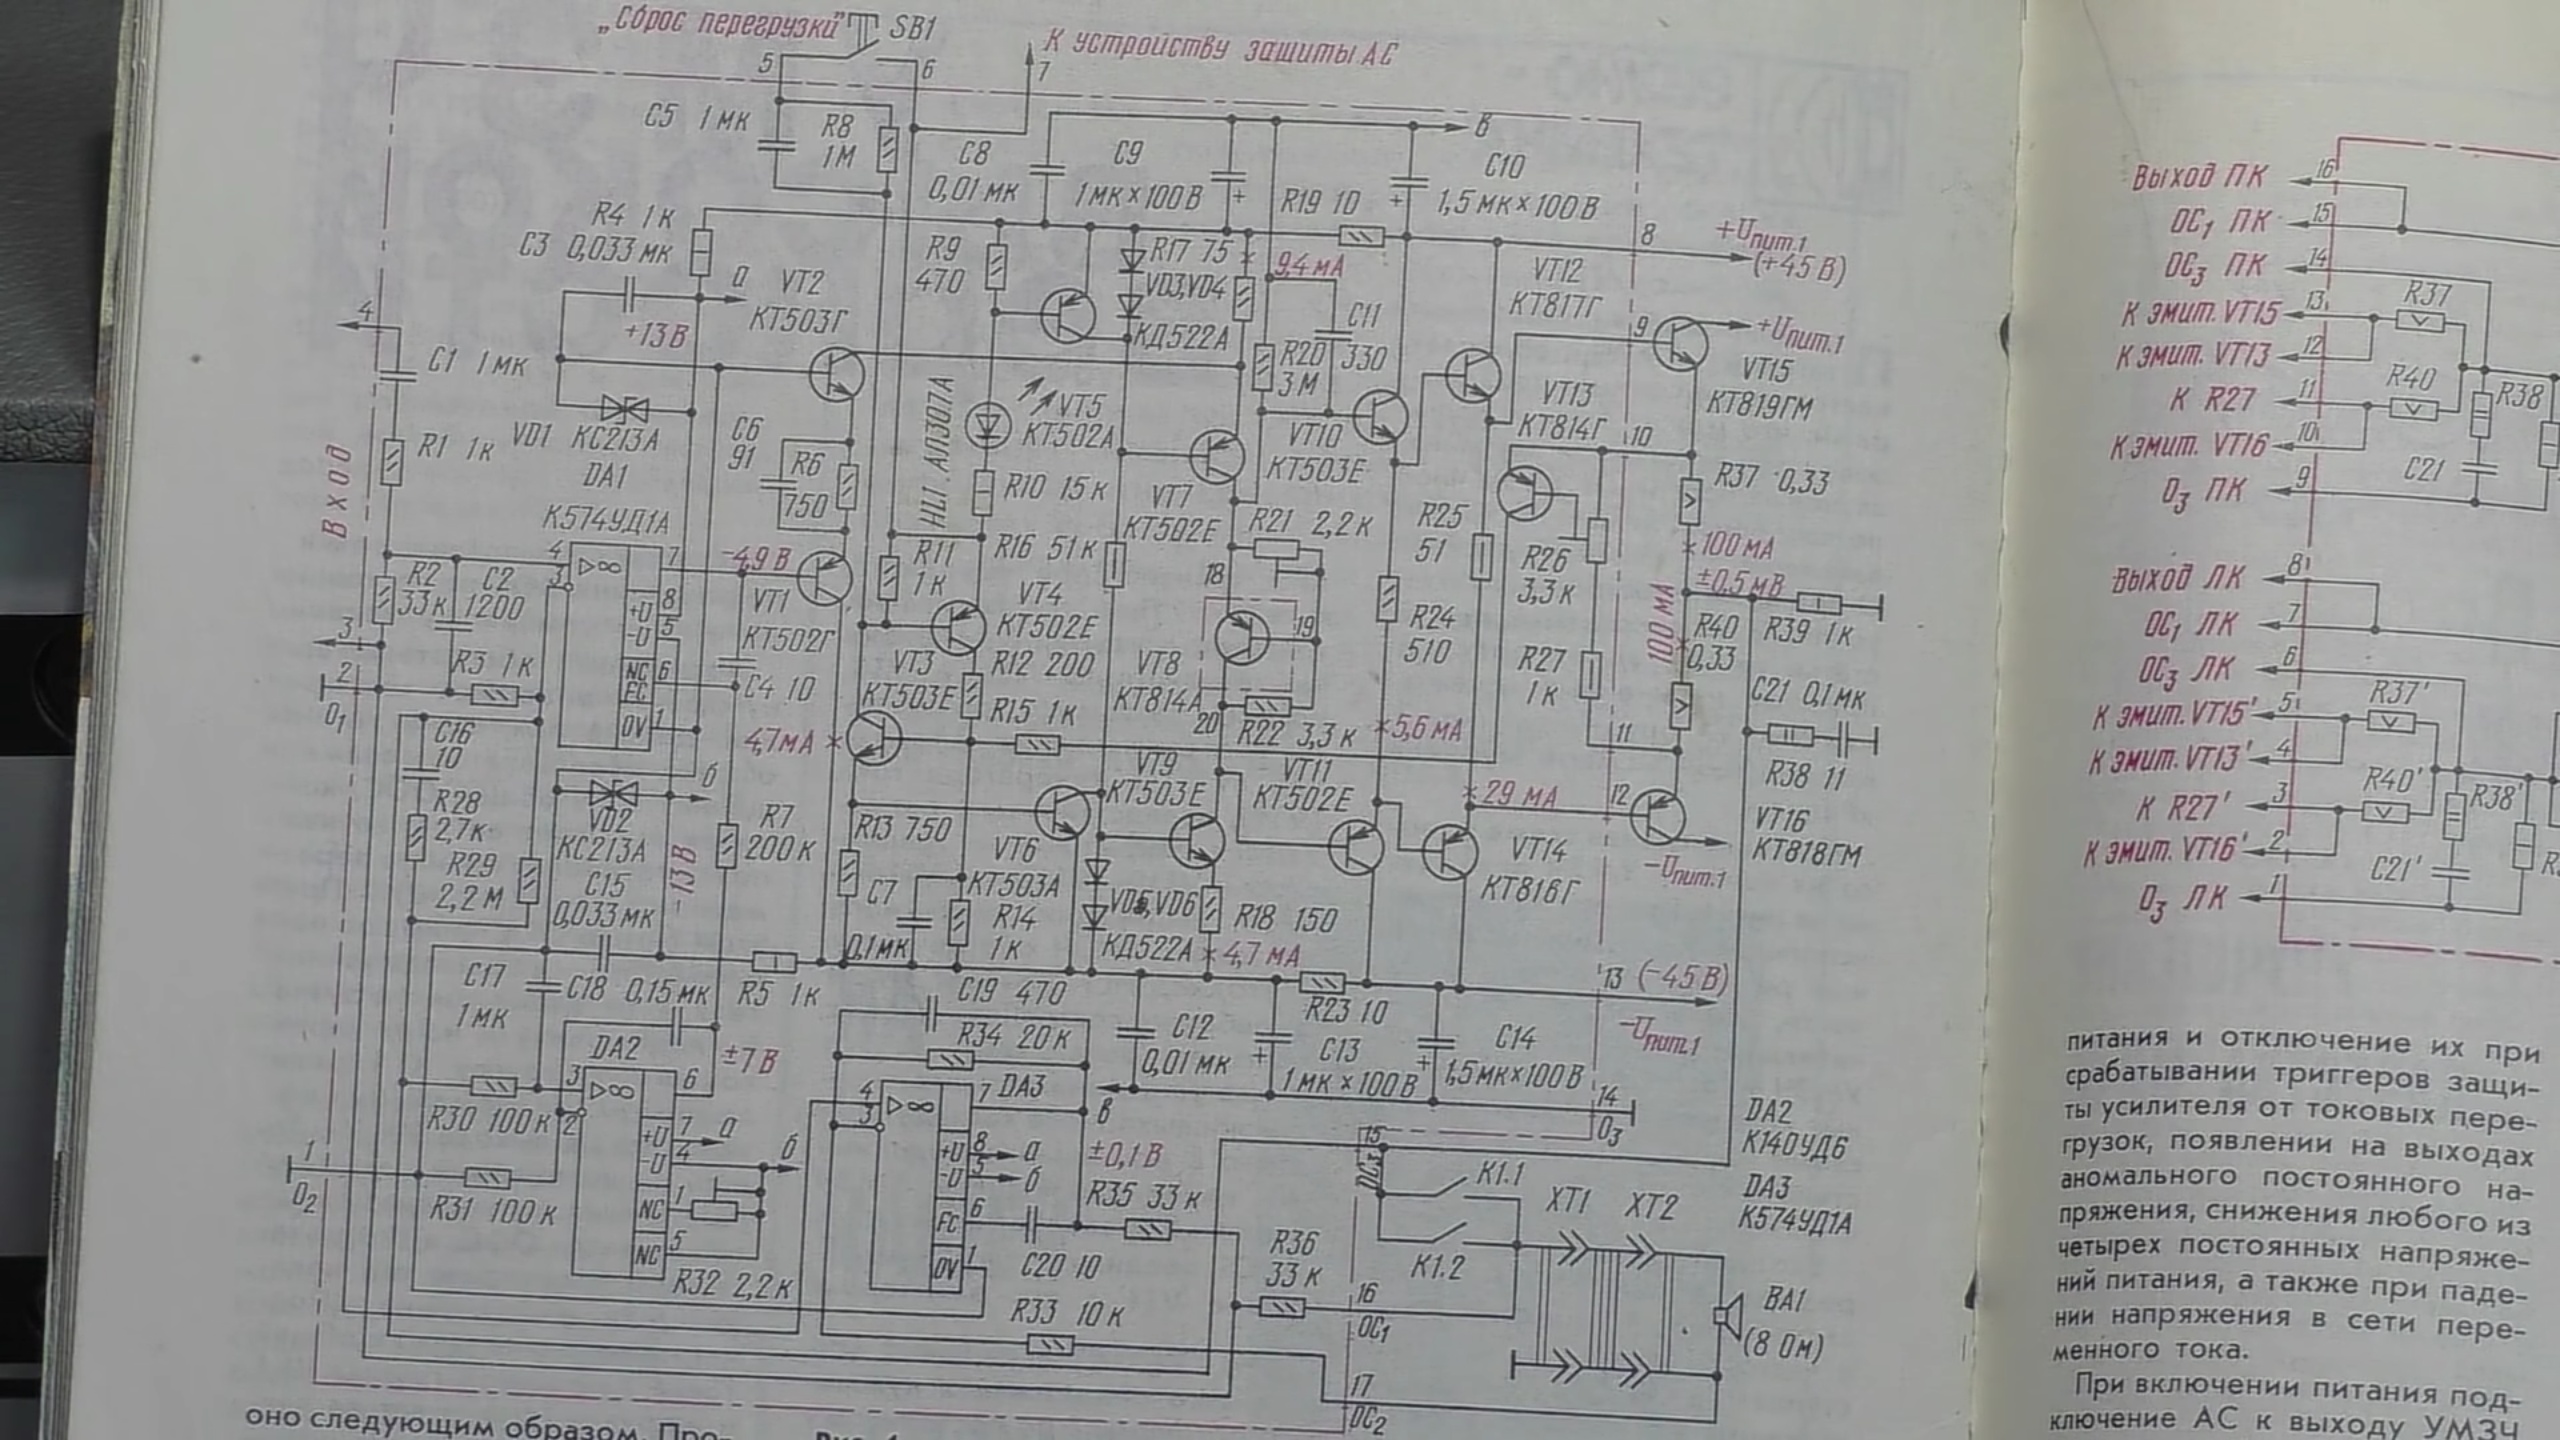 „Сброс перегрузки"
SB1
К устройству защиты АС
5
6
7
C5 1 мк
R8
1М
C8
0,01 мк
C9
1 мк × 100 В
+
R19 10
+
C10
1,5 мк × 100 В
в
R4 1к
C3 0,033 мк
а
VT2
КТ503Г
+13 В
R9
470
R17 75
9,4 мА
VD3,VD4
КД522А
C11
330
R20
3М
VT12
КТ817Г
8
+Uпит.1
(+45 В)
9
+Uпит.1
VT15
КТ819ГМ
4
C1 1 мк
R1 1к
VD1 КС213А
DA1
К574УД1А
C6
91
R6
750
HL1 АЛ307А
VT5
КТ502А
R10 15 к
VT10
КТ503Е
VT13
КТ814Г
10
R37 0,33
Вход
VT7
КТ502Е
R25
51
R21 2,2к
R16 51к
R11
1к
R26
3,3к
100 мА
±0,5 мВ
4
3
▷∞
7
-4,9 В
R2
33 к
C2
1200
+U
8
-U
5
VT1
КТ502Г
VT4
КТ502Е
18
19
R24
510
100 мА
R40
0,33
R39 1к
3
R3 1к
NC
FC
6
C4 10
VT3
КТ503Е
R12 200
VT8
КТ814А
R27
1к
C21 0,1мк
2
0₁
0V
1
R15 1к
20
R22 3,3 к
5,6 мА
11
R38 11
C16
10
4,7мА
б
VT9
КТ503Е
VT11
КТ502Е
29 мА
12
R28
2,7к
VD2
КС213А
R7
200 к
R13 750
VT6
КТ503А
VT14
КТ816Г
VT16
КТ818ГМ
-Uпит.1
R29
2,2 М
C15
0,033 мк
-13 В
C7
0,1мк
R14
1к
VD5,VD6
КД522А
R18 150
4,7 мА
C17
1 мк
C18 0,15 мк
R5 1к
C19 470
R23 10
13 (-45 В)
-Uпит.1
DA2
±7 В
R34 20 к
C12
0,01 мк
+
C13
1 мк × 100 В
+
C14
1,5 мк × 100 В
3
2
▷∞
6
4
3
▷∞
DA3
7
в
14
0₃
R30 100 к
+U
7
а
-U
4
б
+U
8
а
-U
5
б
±0,1 В
15
ОС₃
DA2
К140УД6
1
0₂
R31 100 к
NC
1
NC
5
R32 2,2 к
FC
6
0V
1
C20 10
R35 33 к
K1.1
K1.2
XT1
XT2
DA3
К574УД1А
R36
33 к
R33 10 к
16
ОС₁
17
ОС₂
BA1
(8 Ом)
оно следующим образом. Про-
Выход ПК
16
ОС₁ ПК
15
ОС₃ ПК
14
К эмит. VT15
13
R37
К эмит. VT13
12
К R27
11
R40
R38
К эмит. VT16
10
C21
0₃ ПК
9
Выход ЛК
8
ОС₁ ЛК
7
ОС₃ ЛК
6
К эмит. VT15'
5
R37'
К эмит. VT13'
4
К R27'
3
R40'
R38'
К эмит. VT16'
2
C21'
0₃ ЛК
1
питания и отключение их при
срабатывании триггеров защи-
ты усилителя от токовых пере-
грузок, появлении на выходах
аномального постоянного на-
пряжения, снижения любого из
четырех постоянных напряже-
ний питания, а также при паде-
нии напряжения в сети пере-
менного тока.
При включении питания под-
ключение АС к выходу УМЗЧ